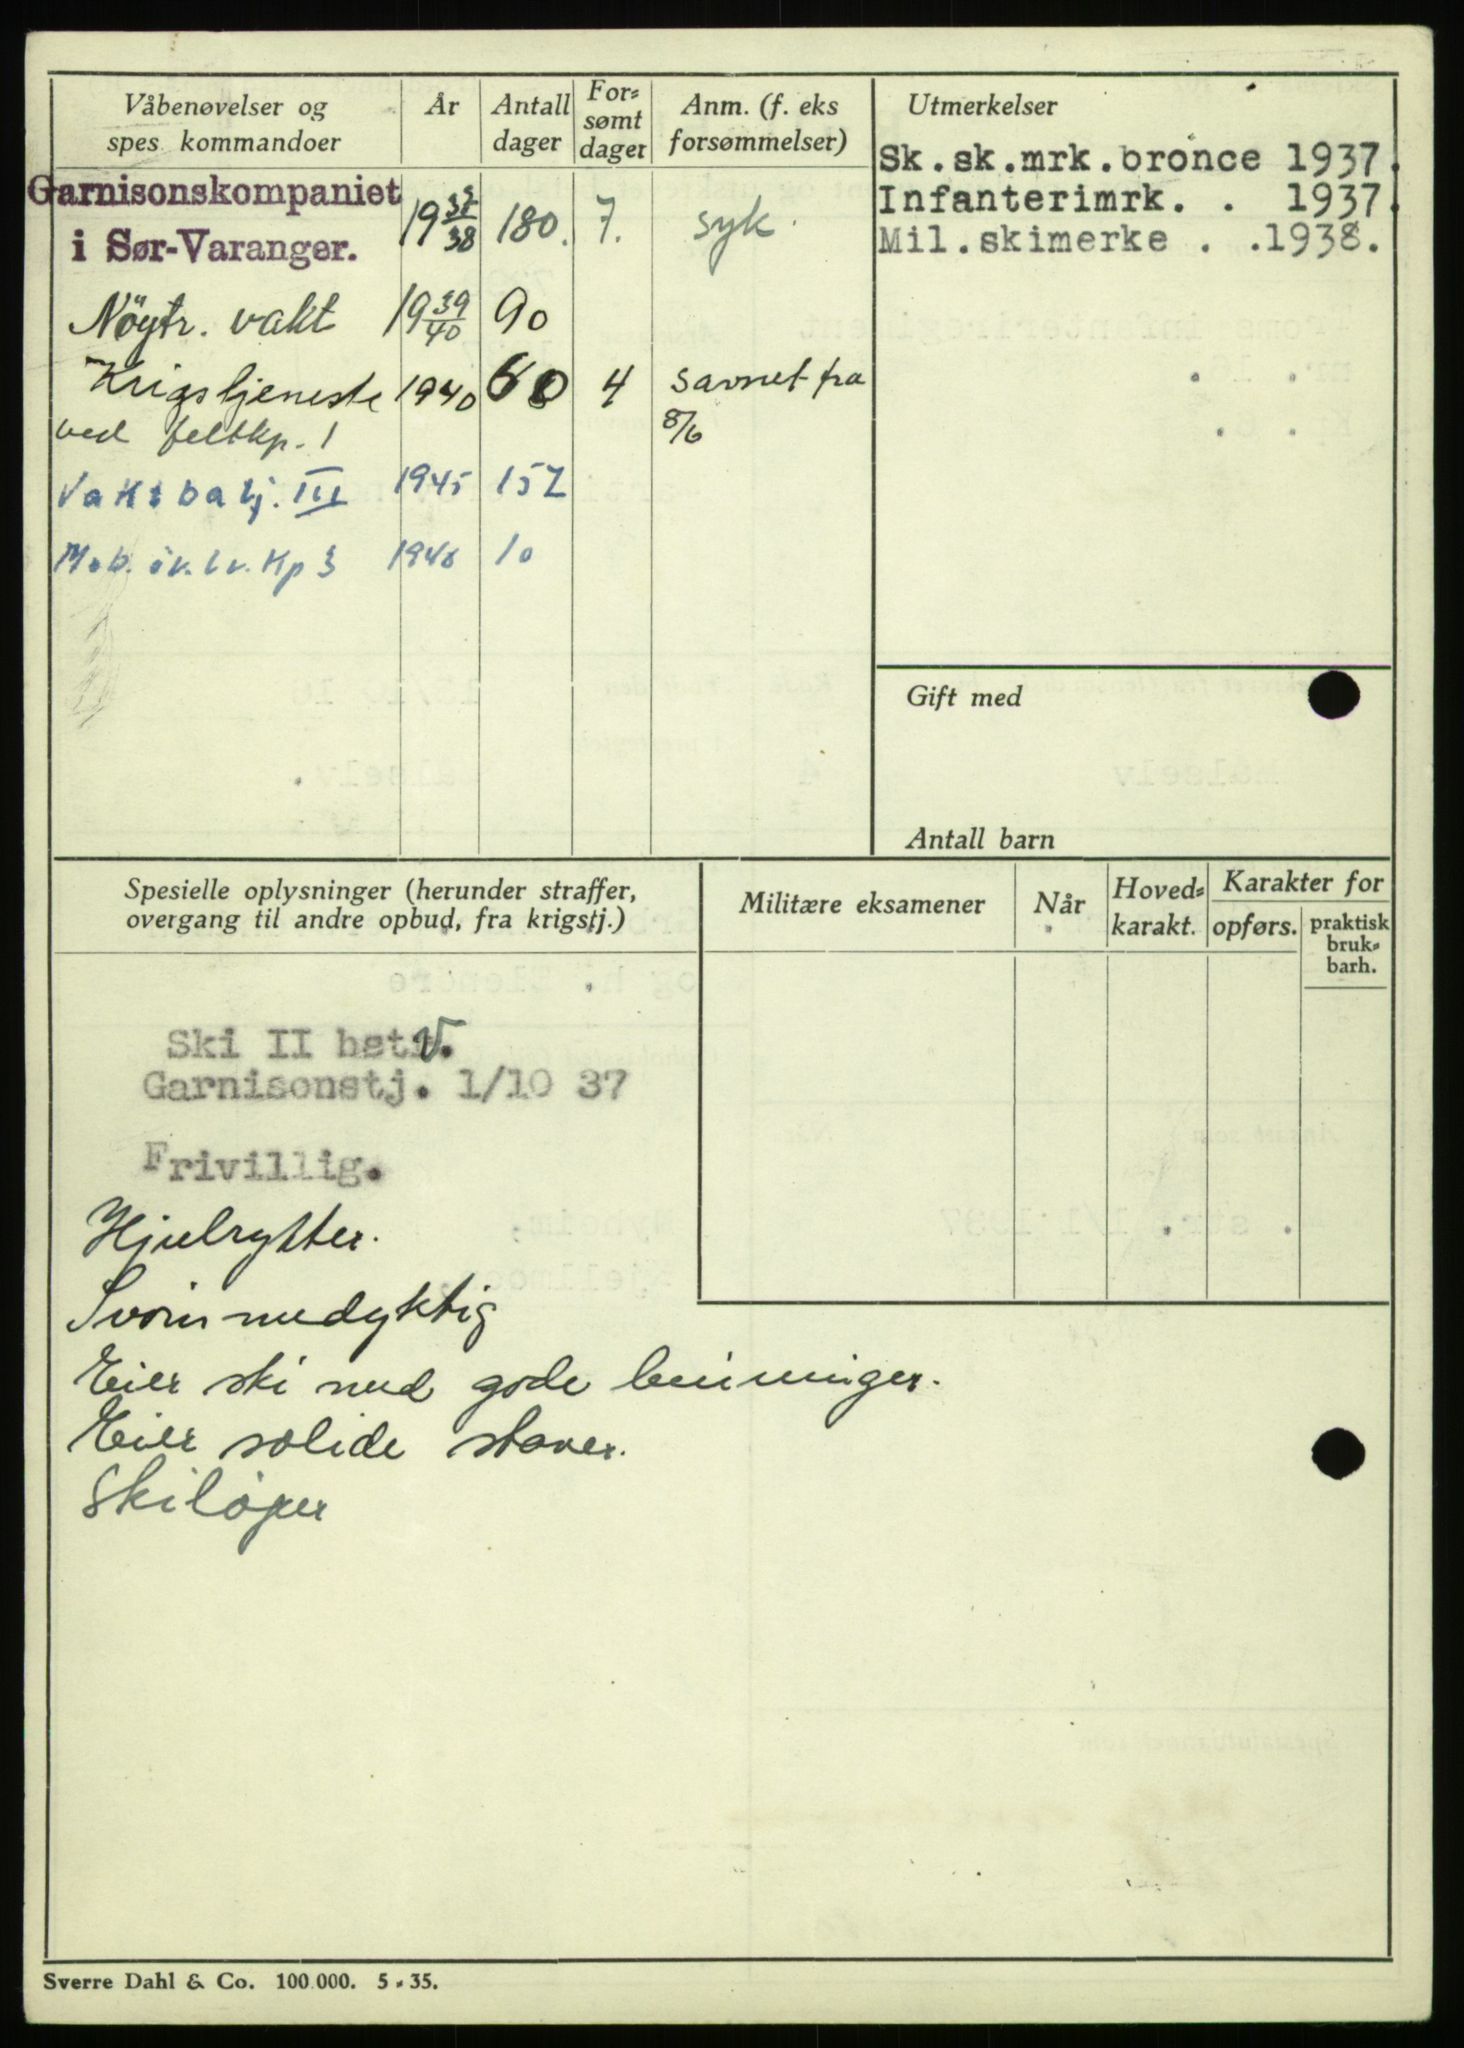 Våbenøvelser og
spes kommandoer
År
Antall
dager
For=
sømt
dager
Anm. (f. eks
forsømmelser)
Garnisonskompaniet
i Sør-Varanger.
19 37/38
180.
7.
syk.
Nöytr. vakt
19 39/40
90
Krigstjeneste
ved feltkp. 1
1940
4
savnet fra
8/6
Vaktbatj. III
1945
157
Mob. øv. lv. Kp 3
10
Utmerkelser
Sk.sk.mrk.bronce 1937.
Infanterimrk. . 1937.
Mil.skimerke . .1938.
Gift med
Antall barn
Spesielle oplysninger (herunder straffer,
overgang til andre opbud, fra krigstj.)
Ski II bstv.
Garnisonstj. 1/10 37
Frivillig.
Hjulrytter.
Svömmedyktig
Eier ski med gode bindinger.
Eier solide staver.
Skiløper
Militære eksamener
Når
Hoved=
karakt.
Karakter for
opførs.
praktisk
bruk=
barh.
Sverre Dahl & Co. 100.000. 5 - 35.